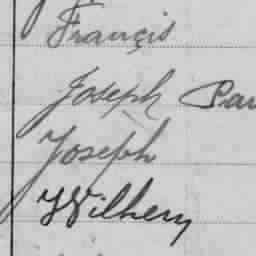 Francis
Joseph Pau
Joseph
Wilhem